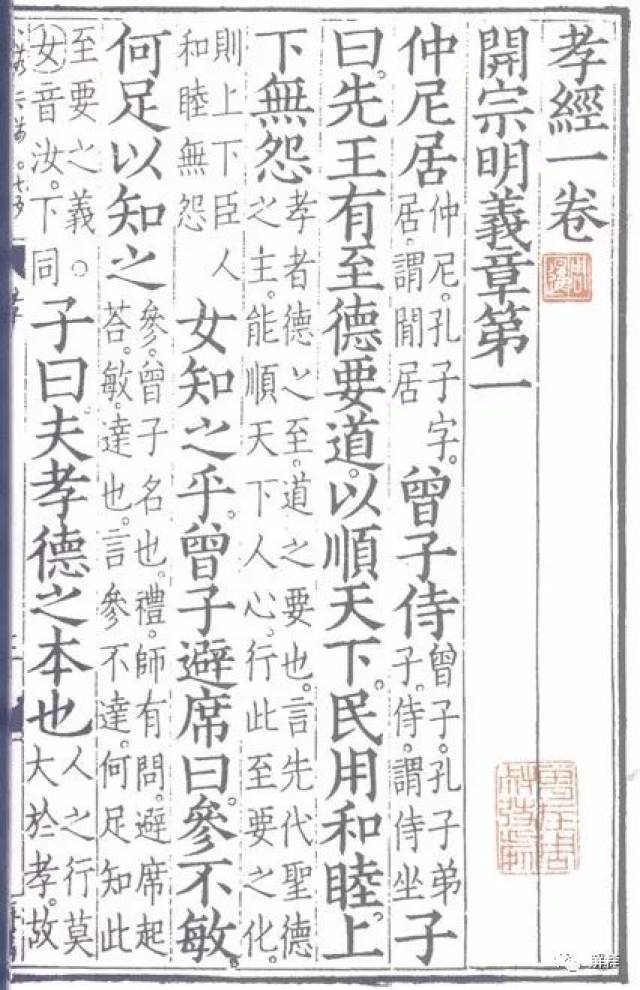 孝經一卷
周暹
開宗明義章第一
仲尼居仲尼。孔子字。居。謂閒居曾子侍曾子。孔子弟子。侍。謂侍坐子
曰。先王有至德要道。以順天下。民用和睦。上
下無怨孝者德之至。道之要也。言先代聖德之主。能順天下人心。行此至要之化。
則上下臣人和睦無怨女知之乎。曾子避席曰。參不敏。
何足以知之參。曾子名也。禮。師有問。避席起荅。敏。達也。言參不達。何足知此
至要之義。女音汝。下同子曰夫孝德之本也人之行莫大於孝。故